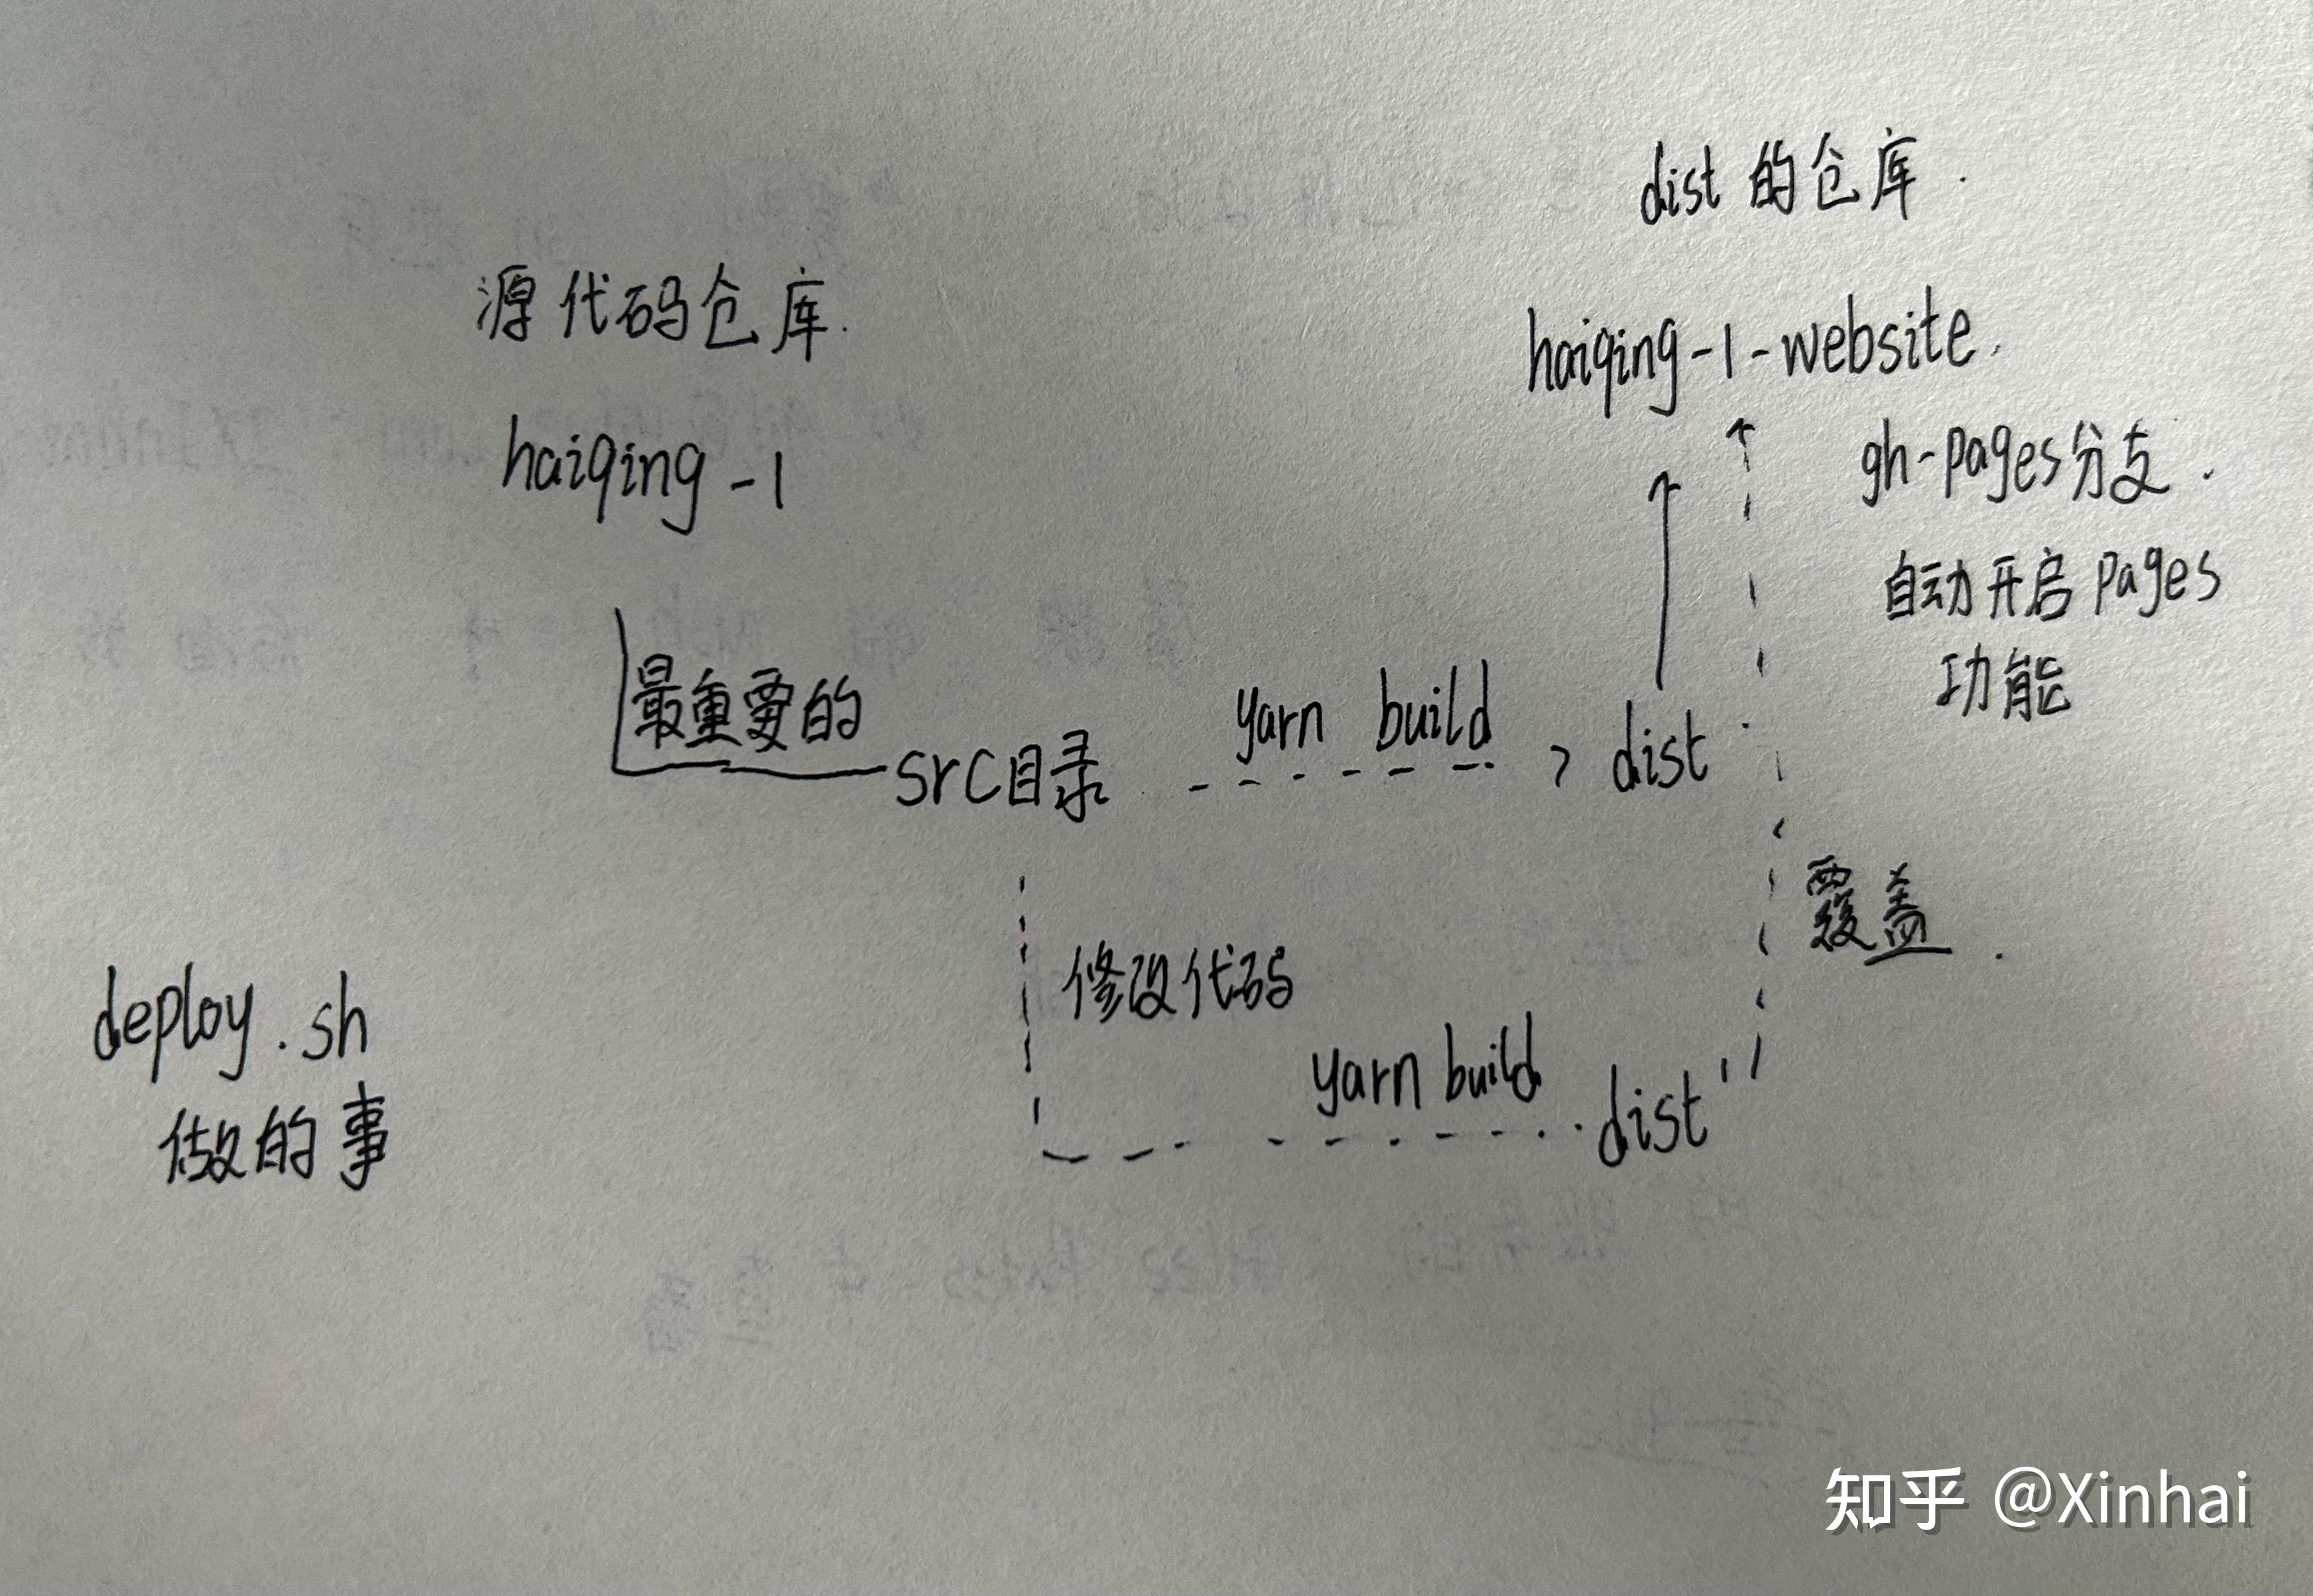 dist 的仓库.
源代码仓库.
haiqing-1-website.
haiqing-1
gh-pages分支.
自动开启 pages
功能
最重要的
src目录
yarn build
dist
覆盖.
修改代码
deploy.sh
做的事
yarn build
dist'
知乎 @Xinhai